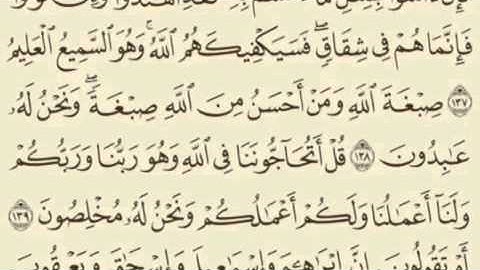 فَإِنَّمَا هُمْ فِى شِقَاقٍۖ فَسَيَكْفِيكَهُمُ ٱللَّهُۚ وَهُوَ ٱلسَّمِيعُ ٱلْعَلِيمُ
١٣٧ صِبْغَةَ ٱللَّهِ وَمَنْ أَحْسَنُ مِنَ ٱللَّهِ صِبْغَةًۖ وَنَحْنُ لَهُۥ
عَٰبِدُونَ ١٣٨ قُلْ أَتُحَآجُّونَنَا فِى ٱللَّهِ وَهُوَ رَبُّنَا وَرَبُّكُمْ
وَلَنَآ أَعْمَٰلُنَا وَلَكُمْ أَعْمَٰلُكُمْ وَنَحْنُ لَهُۥ مُخْلِصُونَ ١٣٩
أَمْ تَقُولُونَ إِنَّ إِبْرَٰهِـۧمَ وَإِسْمَٰعِيلَ وَإِسْحَٰقَ وَيَعْقُوبَ